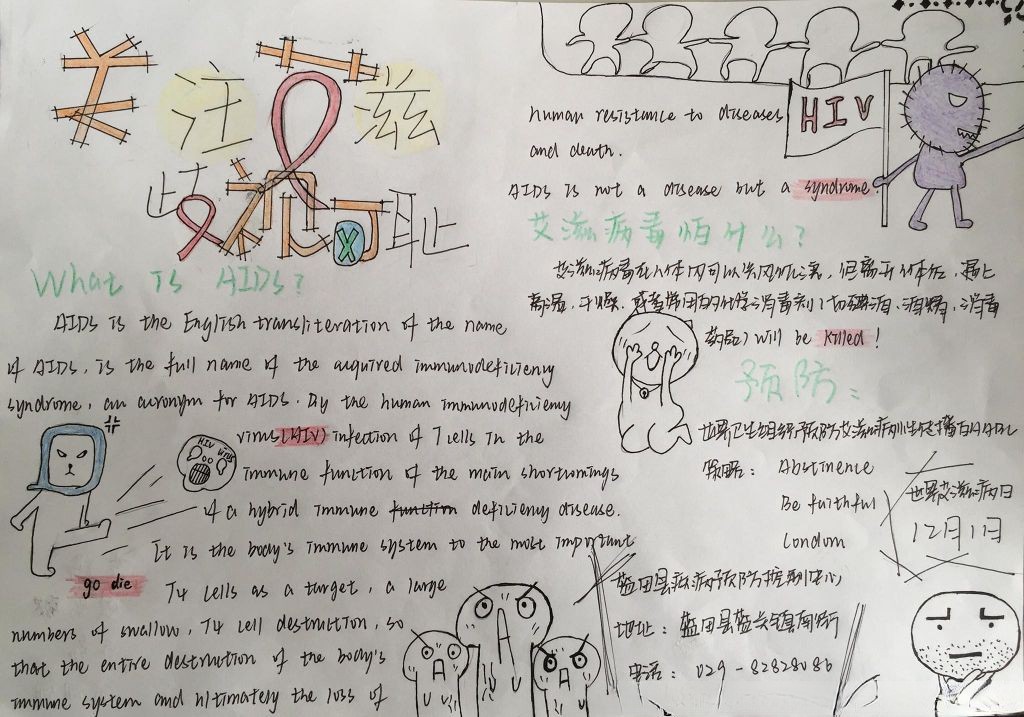 关注艾滋
歧视可耻
What Is AIDS?
AIDS is the English transliteration of the name
of AIDS, is the full name of the acquired immunodeficieny
syndrome, an acronym for AIDS. By the human immunodeficieny
virus (HIV) infection of T cells in the
immune function of the main shortcomings
of a hybrid immune function deficieny disease.
It is the body's immune system to the most important
T4 cells as a target, a large
numbers of swallow, T4 cell destruction, so
that the entire destruction of the body's
immune system and ultimately the loss of
HIV VIRUS
go die
human resistance to diseases
and death.
AIDS is not a disease but a syndrome.
HIV
艾滋病毒怕什么?
艾滋病毒在人体内可以
但离开人体后,遇上
高温、干燥、或者常用的化学消毒剂(如碘酒、酒精、消毒
药品) will be killed!
预防:
世界卫生组织预防艾滋病
策略: Abstinence
Be faithful
Condom
世界艾滋病日
12月1日
蓝田县疾病预防控制中心
地址: 蓝田县蓝关镇南
电话: 029-82828086